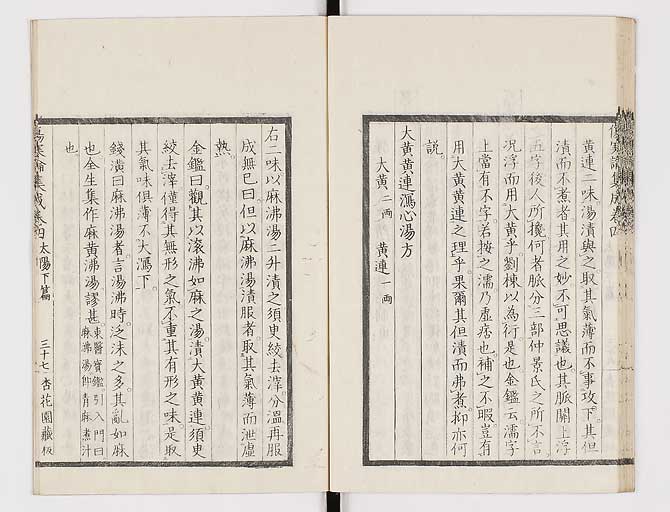 黄連二味湯漬與之取其氣薄而不事攻下其但
漬而不煮者其用之妙不可思議也其脈關上浮
五字後人所攙何者脈分三部仲景氏之所不言
况浮而用大黄乎劉棟以為衍是也金鑑云濡字
上當有不字若按之濡乃虛痞也補之不暇豈有
用大黄黄連之理乎果爾其但漬而弗煮抑亦何
説
大黄黄連瀉心湯方
大黄二両 黄連一両
傷寒論集成卷四
右二味以麻沸湯二升漬之須臾絞去滓分溫再服
成無已曰但以麻沸湯漬服者取其氣薄而泄虛
熱
金鑑曰觀其以滾沸如麻之湯漬大黄黄連須臾
絞去滓僅得其無形之氣不重其有形之味是取
其氣味俱薄不大瀉下
錢潢曰麻沸湯者言湯沸時泛沫之多其亂如麻
也全生集作麻黄沸湯謬甚東醫寶鑑引入門曰
麻沸湯即青麻煮汁
也
傷寒論集成卷四 太陽下篇 三十七 杏花園藏板